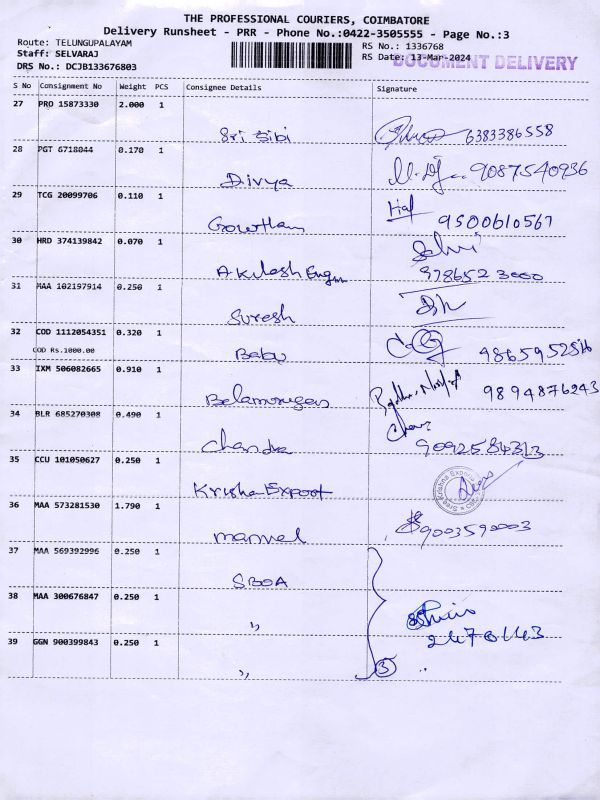 THE PROFESSIONAL COURIERS, COIMBATORE
Delivery Runsheet - PRR - Phone No.:0422-3505555 - Page No.:3
Route: TELUNGUPALAYAM
Staff: SELVARAJ
DRS No.: DCJB133676803
RS No.: 1336768
RS Date: 13-Mar-2024
DOCUMENT DELIVERY
S No Consignment No Weight PCS Consignee Details Signature
27 PRO 15873330 2.000 1
Sri Sibi 6383386558
28 PGT 6718044 0.170 1
Divya 9087540936
29 TCG 20099706 0.110 1
Gowtham 9500610567
30 HRD 374139842 0.070 1
Akilesh Engm 9786523000
31 MAA 102197914 0.250 1
Suresh
32 COD 1112054351 0.320 1
COD Rs.1000.00
Babu
33 IXM 506082665 0.910 1
Balamurugan 9894876243
34 BLR 685270308 0.490 1
Chandra 9092584313
35 CCU 101050627 0.250 1
Krisha Expoot
36 MAA 573281530 1.790 1
manvel 9003590003
37 MAA 569392996 0.250 1
SBOA
38 MAA 300676847 0.250 1
"
39 GGN 900399843 0.250 1
"
3